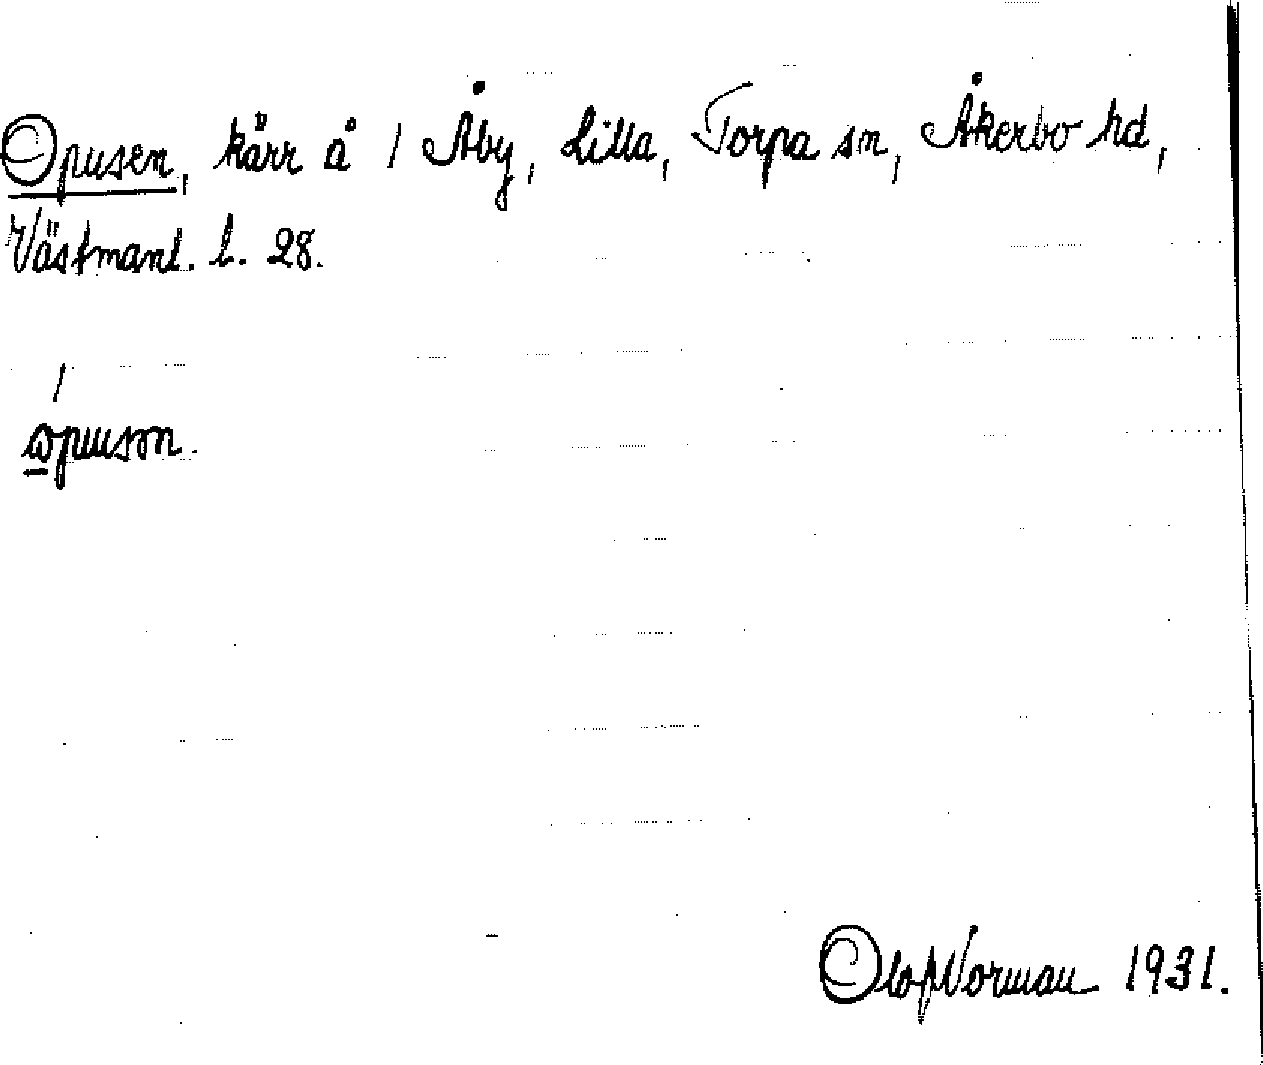 Opusen, kärr å 1 Åby, Lilla, Torpa sn, Åkerbo hd,
Västmanl. l. 28.
Olof Norman 1931.